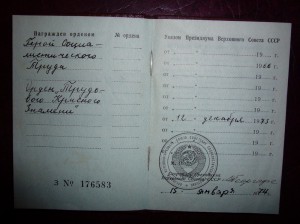 Награжден орденом № ордена
Герой Социа-
листического
Труда
Орден Трудо-
вого Красного
Знамени
Э № 176583
Указом Президиума Верховного Совета СССР
от 19 г.
от 19 г.
от 19 г.
от 19 г.
от 19 г.
от 12 декабря 1973 г.
от 19 г.
от 19 г.
Президиума
Верховного Совета СССР
15 января 74 г.